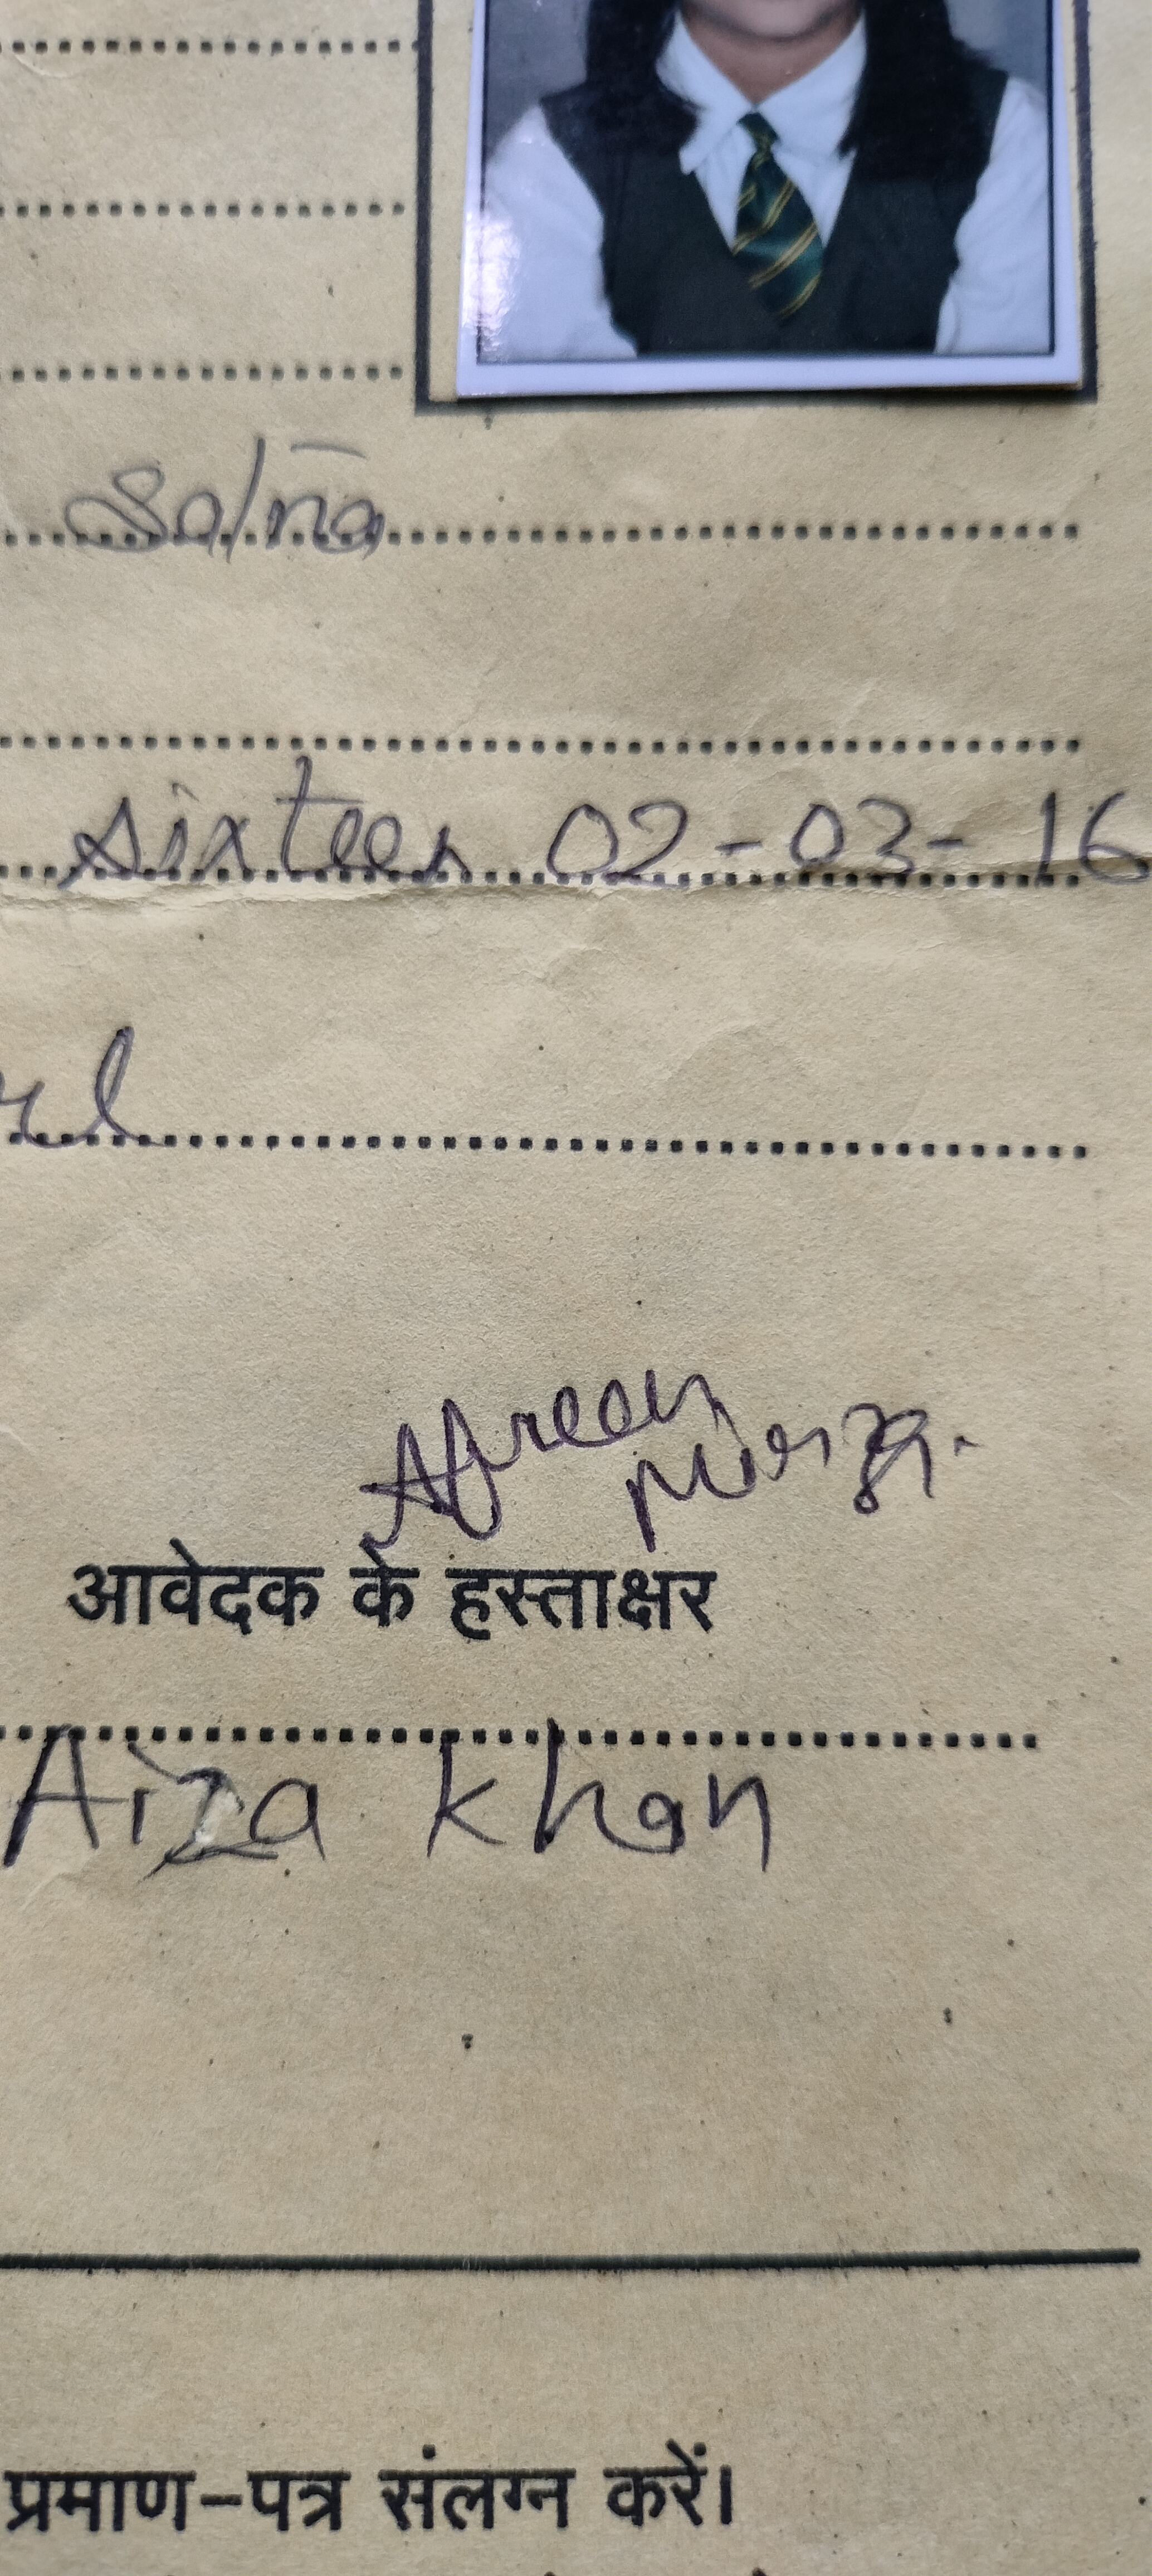 Salna
sixteen 02-03-16
rl
Afreen Mirza.
आवेदक के हस्ताक्षर
Aiza Khan
प्रमाण-पत्र संलग्न करें।